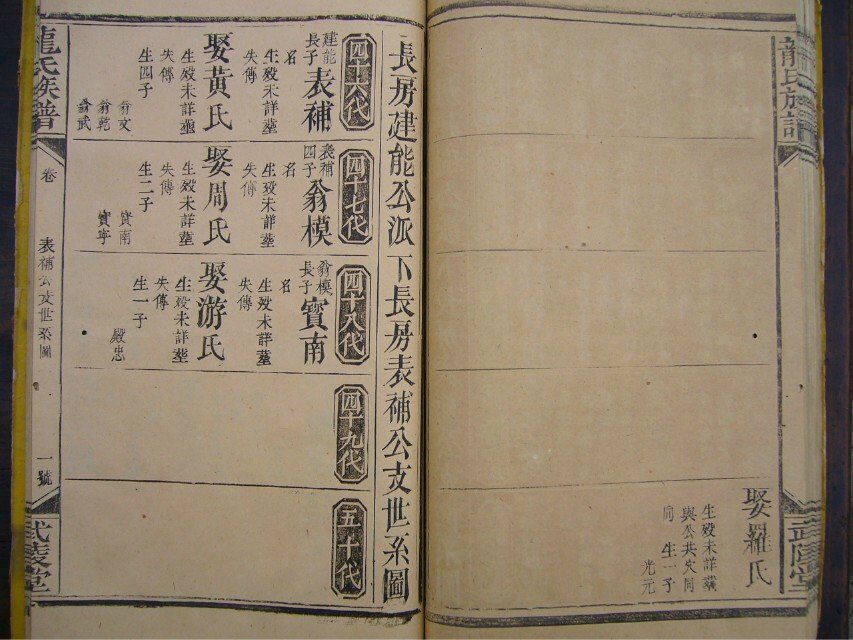 龍氏族譜
武陵堂
娶羅氏
生歿未詳塟
與公共穴同
向 生一子
光元
長房建能公派下長房表補公支世系圖
四十六代
建能
長子
表補
名
生歿未詳塟
失傳
娶黃氏
生歿未詳塟
失傳
生四子
翁文
翁乾
翁武
四十七代
表補
四子
翁模
名
生歿未詳塟
失傳
娶周氏
生歿未詳塟
失傳
生二子
寳南
寳寧
四十八代
翁模
長子
寳南
名
生歿未詳塟
失傳
娶游氏
生歿未詳塟
失傳
生一子
殿忠
四十九代
五十代
龍氏族譜
卷
表補公支世系圖
一號
武陵堂